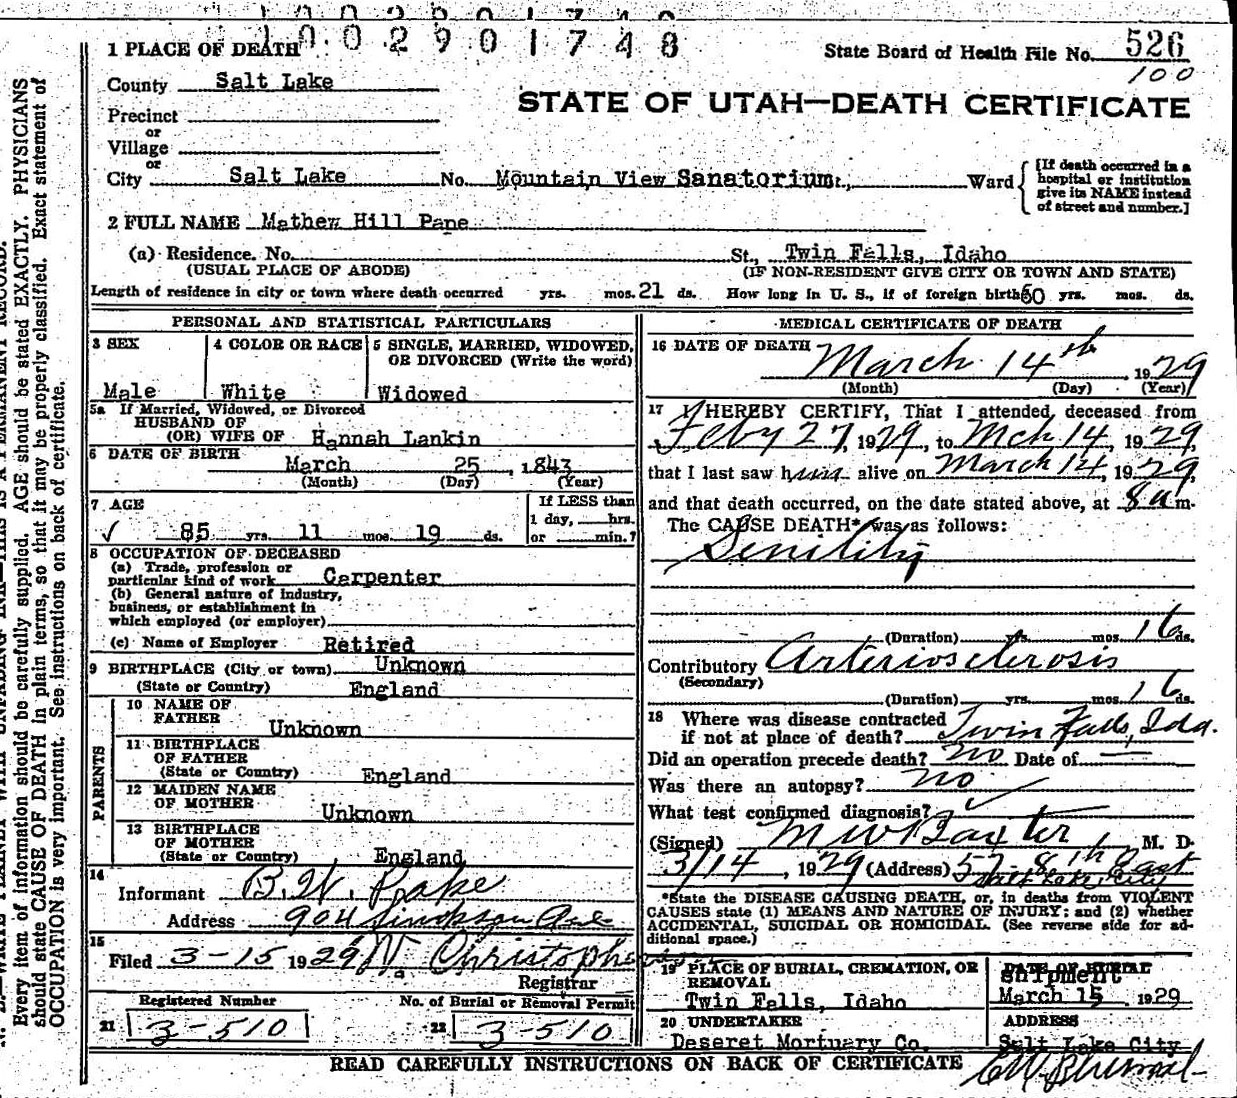 1002901748
1 PLACE OF DEATH
State Board of Health File No. 526
100
County Salt Lake
STATE OF UTAH—DEATH CERTIFICATE
Precinct
or
Village
or
City Salt Lake No. Mountain View Sanatorium St., Ward
[If death occurred in a hospital or institution give its NAME instead of street and number.]
2 FULL NAME Mathew Hill Pape
(a) Residence. No. St., Twin Falls, Idaho
(USUAL PLACE OF ABODE) (IF NON-RESIDENT GIVE CITY OR TOWN AND STATE)
Length of residence in city or town where death occurred yrs. mos. 21 ds. How long in U. S., if of foreign birth 60 yrs. mos. ds.
PERSONAL AND STATISTICAL PARTICULARS
3 SEX
Male
4 COLOR OR RACE
White
5 SINGLE, MARRIED, WIDOWED,
OR DIVORCED (Write the word)
Widowed
5a If Married, Widowed, or Divorced
HUSBAND OF
(OR) WIFE OF Hannah Lankin
6 DATE OF BIRTH
March 25, 1843
(Month) (Day) (Year)
7 AGE
85 yrs. 11 mos. 19 ds.
If LESS than
1 day, hrs.
or min.?
8 OCCUPATION OF DECEASED
(a) Trade, profession or
particular kind of work Carpenter
(b) General nature of industry,
business, or establishment in
which employed (or employer)
(c) Name of Employer Retired
9 BIRTHPLACE (City or town) Unknown
(State or Country) England
PARENTS
10 NAME OF
FATHER
Unknown
11 BIRTHPLACE
OF FATHER
(State or Country) England
12 MAIDEN NAME
OF MOTHER
Unknown
13 BIRTHPLACE
OF MOTHER
(State or Country) England
14
Informant B. W.
Address 904 Ave
15
Filed 3-15 1929 W. Christopherson
Registrar
Registered Number
21 3-510
No. of Burial or Removal Permit
22 3-510
MEDICAL CERTIFICATE OF DEATH
16 DATE OF DEATH March 14th 1929
(Month) (Day) (Year)
17 I HEREBY CERTIFY, That I attended deceased from
Feby 27, 1929, to Mch 14, 1929,
that I last saw him alive on March 14, 1929,
and that death occurred, on the date stated above, at 8 a m.
The CAUSE DEATH* was as follows:
Senility
(Duration) yrs. mos. 16 ds.
Contributory Arteriosclerosis
(Secondary)
(Duration) yrs. mos. 16 ds.
18 Where was disease contracted
if not at place of death? Twin Falls, Ida.
Did an operation precede death? no Date of —
Was there an autopsy? no
What test confirmed diagnosis?
(Signed) M W Baxter, M. D.
3/14, 1929 (Address) 57-8th East
Salt Lake City
*State the DISEASE CAUSING DEATH, or, in deaths from VIOLENT
CAUSES state (1) MEANS AND NATURE OF INJURY: and (2) whether
ACCIDENTAL, SUICIDAL OR HOMICIDAL. (See reverse side for ad-
ditional space.)
19 PLACE OF BURIAL, CREMATION, OR
REMOVAL
Twin Falls, Idaho
DATE OF BURIAL
Shipment
March 15 1929
20 UNDERTAKER
Deseret Mortuary Co.
ADDRESS
Salt Lake City
READ CAREFULLY INSTRUCTIONS ON BACK OF CERTIFICATE
Every item of information should be carefully supplied. AGE should be stated EXACTLY. PHYSICIANS
should state CAUSE OF DEATH in plain terms, so that it may be properly classified. Exact statement of
OCCUPATION is very important. See instructions on back of certificate.